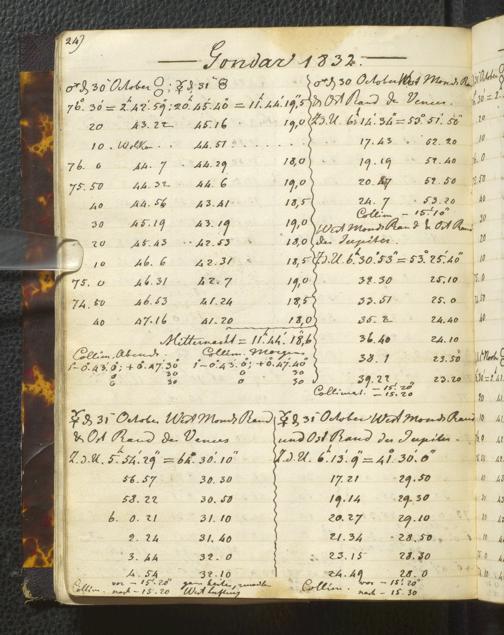 24)
— Gondar 1832. —
♂ d 30 October ; ☿ d 31
76° 30' = 2h 42' 59"; 20h 45' 40" = 11h 44' 19",5
20 43.22 45.16 19,0
10 Wolken 44.51 . . . . .
76. 0 44. 7 44.29 18,0
75. 50 44.32 44. 6 19,0
40 44.56 43.41 18,5
30 45.19 43.19 19,0
20 45.43 42.53 18,0
10 46. 6 42.31 18,5
75. 0 46.31 42. 7 19,0
74. 50 46.53 41.24 18,5
40 47.16 41.20 18,0
Mitternacht = 11h 44' 18",6
Collim. Abends. Collim. Morgens
1 - 0.43.0; + 0.47.30 1 - 0.43.0; + 0.47.40
0 30 0 30
0 30 0 30
♂ d 30 October West Monds Rand
& Ost Rand de Venus.
Z.d.U. 6h 14' 34" = 53° 51' 50"
17.43 52.20
19.19 52.40
20.47 52.50
24.7 53.20
Collim - 15' 10"
West Monds Rand & Ost Rand
des Jupiter.
Z.d.U. 6h 30' 53" = 53° 25' 40"
32.30 25.10
33.51 25.0
35.2 24.40
36.40 24.10
38.1 23.50
39.22 23.20
Collimat. - 15' 20"
- 15.20
☿ d 31 October West Monds Rand
& Ost Rand de Venus
Z.d.U. 5h 54' 29" = 64° 30' 10"
56.57 30.30
58.22 30.50
6. 0.21 31.10
2.24 31.40
3.44 32.0
4.54 32.10
Collim. vor - 15' 20"
nach - 15' 20
☿ d 31 October West Monds Rand
und Ost Rand des Jupiter.
Z.d.U. 6h 13' 9" = 41° 30' 0"
17.21 29.50
19.14 29.30
20.27 29.10
21.34 28.50
23.15 28.30
24.49 28.0
Collim. vor - 15' 20"
nach - 15.30